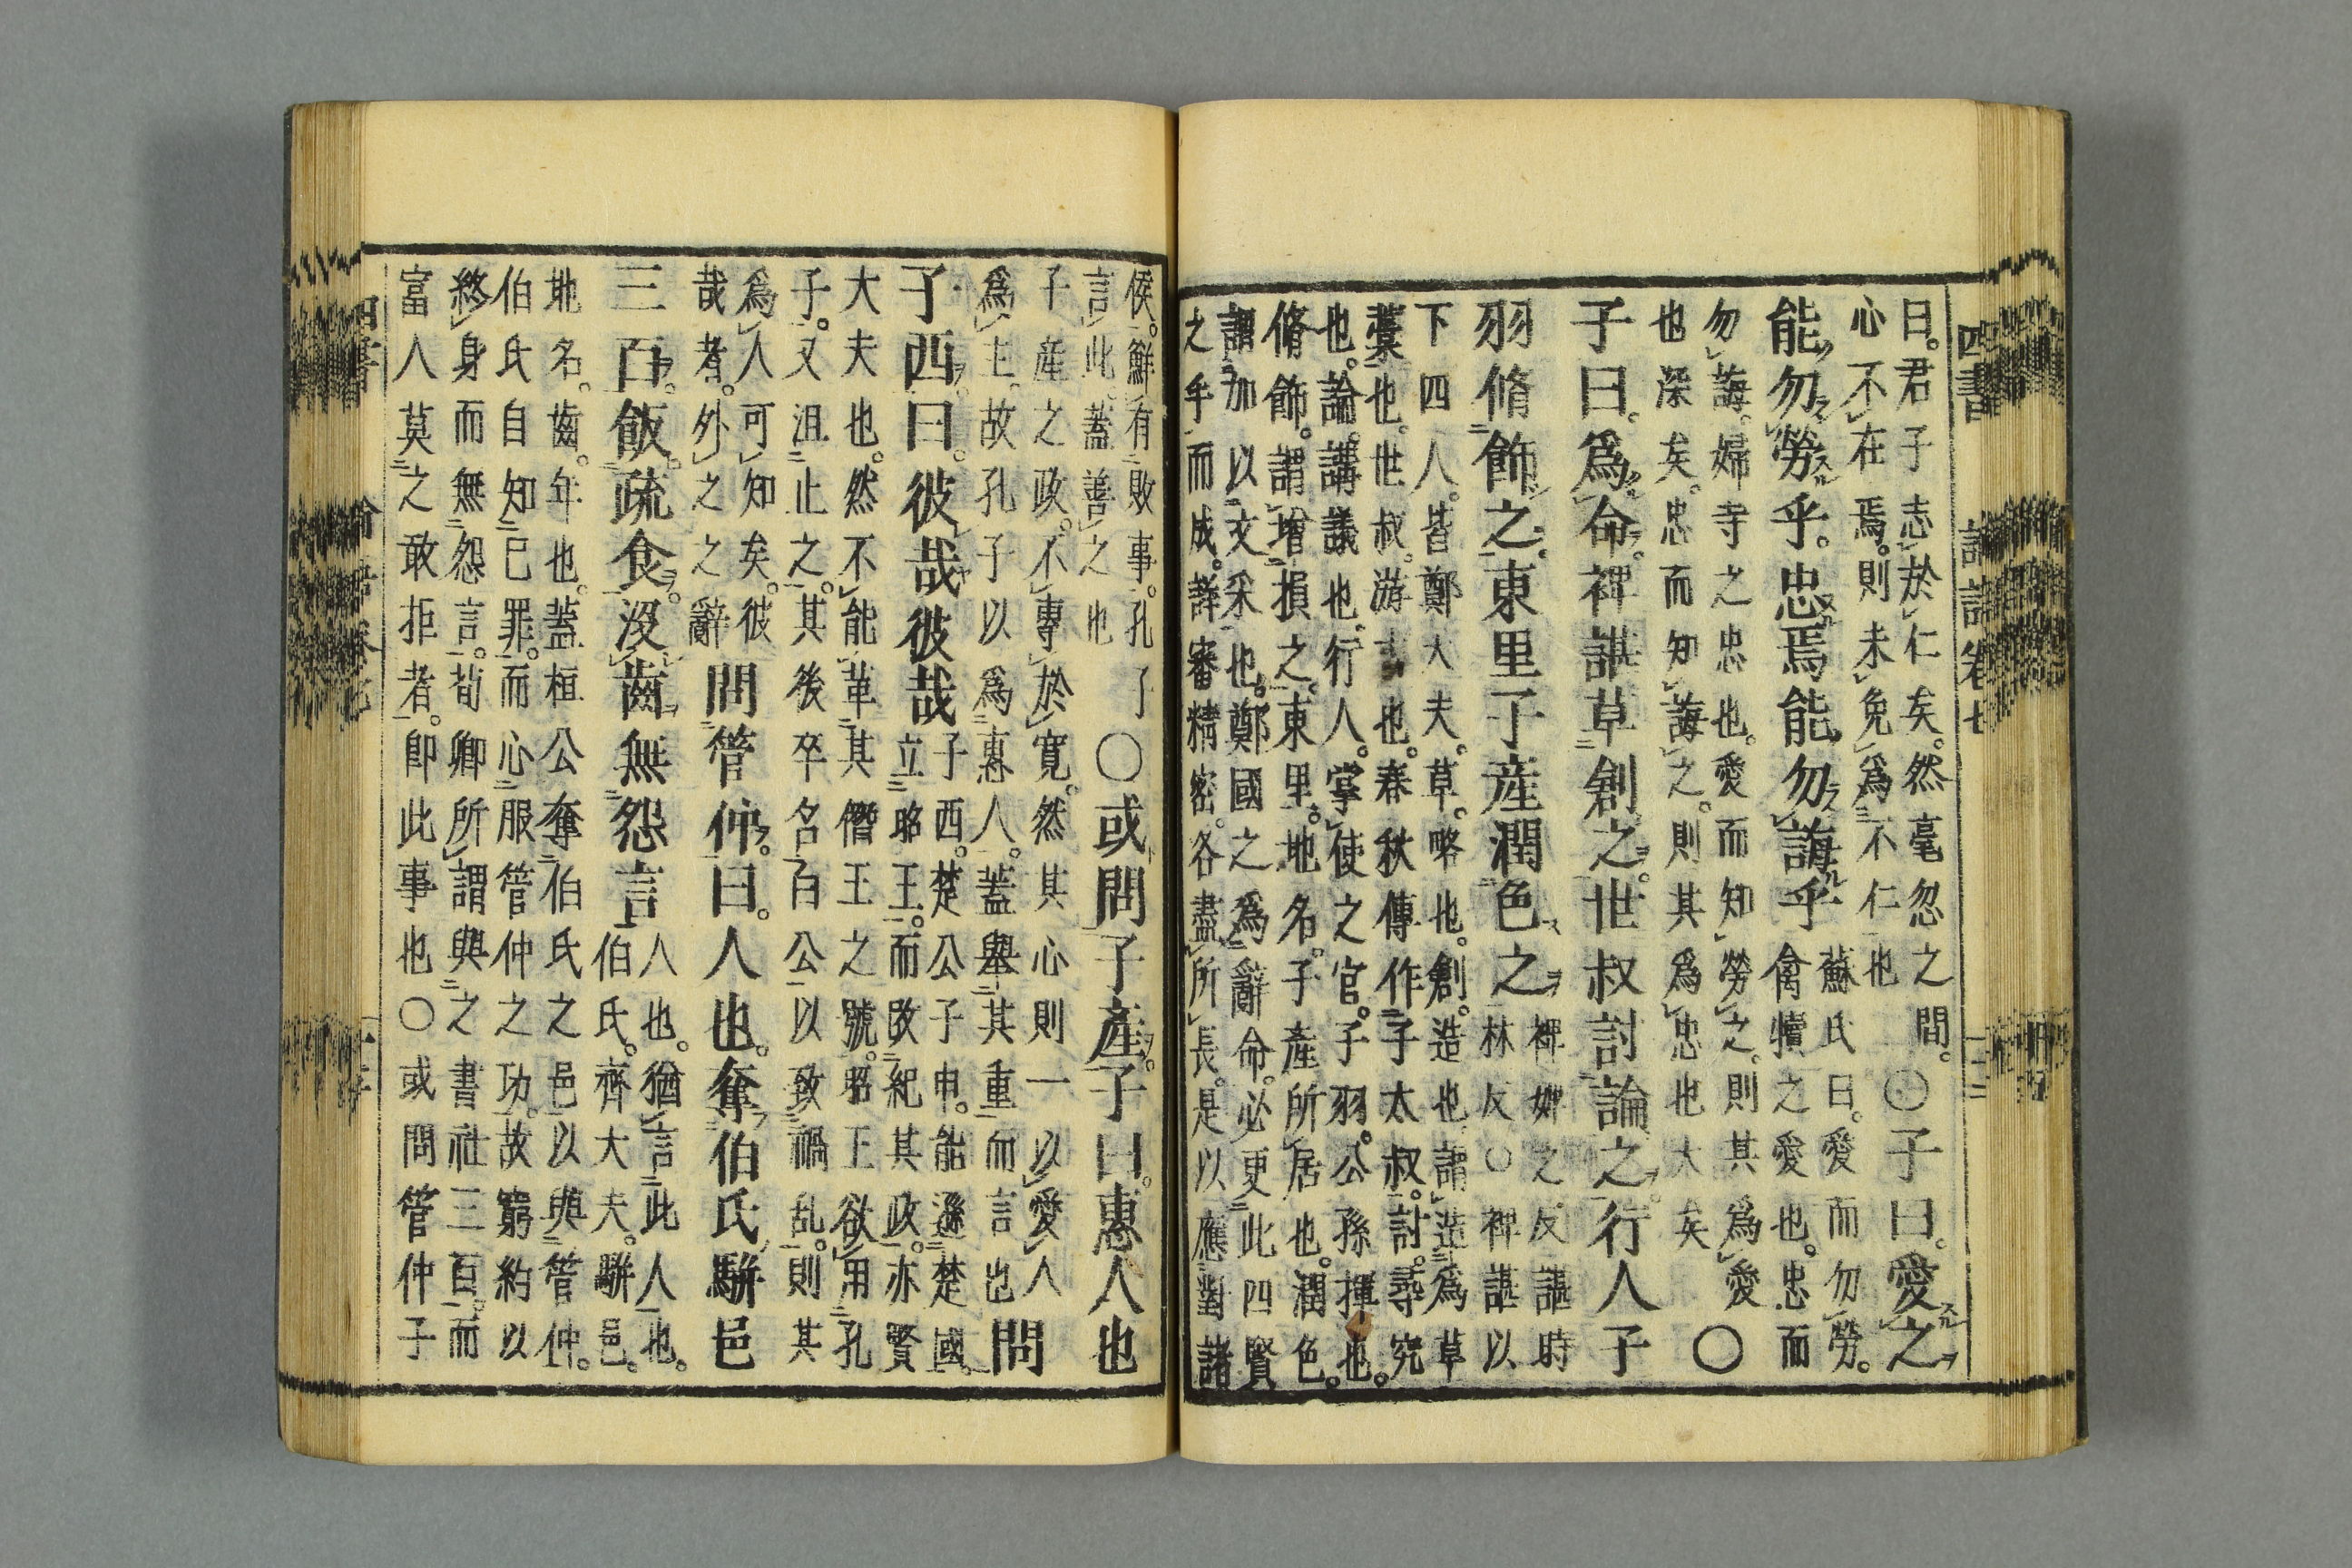 四書 論語卷七 十三
曰。君子志於仁矣。然毫忽之間。
心不在焉。則未免爲不仁也
○子曰。愛之
能勿勞乎。忠焉能勿誨乎
蘇氏曰。愛而勿勞。
禽犢之愛也。忠而
勿誨。婦寺之忠也。愛而知勞之。則其爲愛
也深矣。忠而知誨之。則其爲忠也大矣
○
子曰。爲命。裨諶草創之。世叔討論之。行人子
羽脩飾之。東里子產潤色之
裨婢之反諶時
林反○裨諶以
下四人。皆鄭大夫。草。略也。創。造也。謂造爲草
藁也。世叔。游吉也。春秋傳作子太叔。討。尋究
也。論。講議也。行人。掌使之官。子羽。公孫揮也。
脩飾。謂增損之。東里。地名。子產所居也。潤色。
謂加以文采也。鄭國之爲辭命。必更此四賢
之手而成。詳審精密。各盡所長。是以應對諸
侯。鮮有敗事。孔子
言此。蓋善之也
○或問子產。子曰。惠人也
子產之政。不專於寬。然其心則一以愛人
爲主。故孔子以爲惠人。蓋舉其重而言也
問
子西。曰。彼哉彼哉
子西。楚公子申。能遜楚國。
立昭王。而改紀其政。亦賢
大夫也。然不能革其僭王之號。昭王欲用孔
子。又沮止之。其後卒名白公以致禍乱。則其
爲人可知矣。彼
哉者。外之之辭
問管仲。曰。人也。奪伯氏駢邑
三百。飯疏食。沒齒無怨言
人也。猶言此人也。
伯氏。齊大夫。駢邑。
地名。齒。年也。蓋桓公奪伯氏之邑以與管仲。
伯氏自知已罪。而心服管仲之功。故窮約以
終身而無怨言。荀卿所謂與之書社三百。而
富人莫之敢拒者。即此事也○或問管仲子